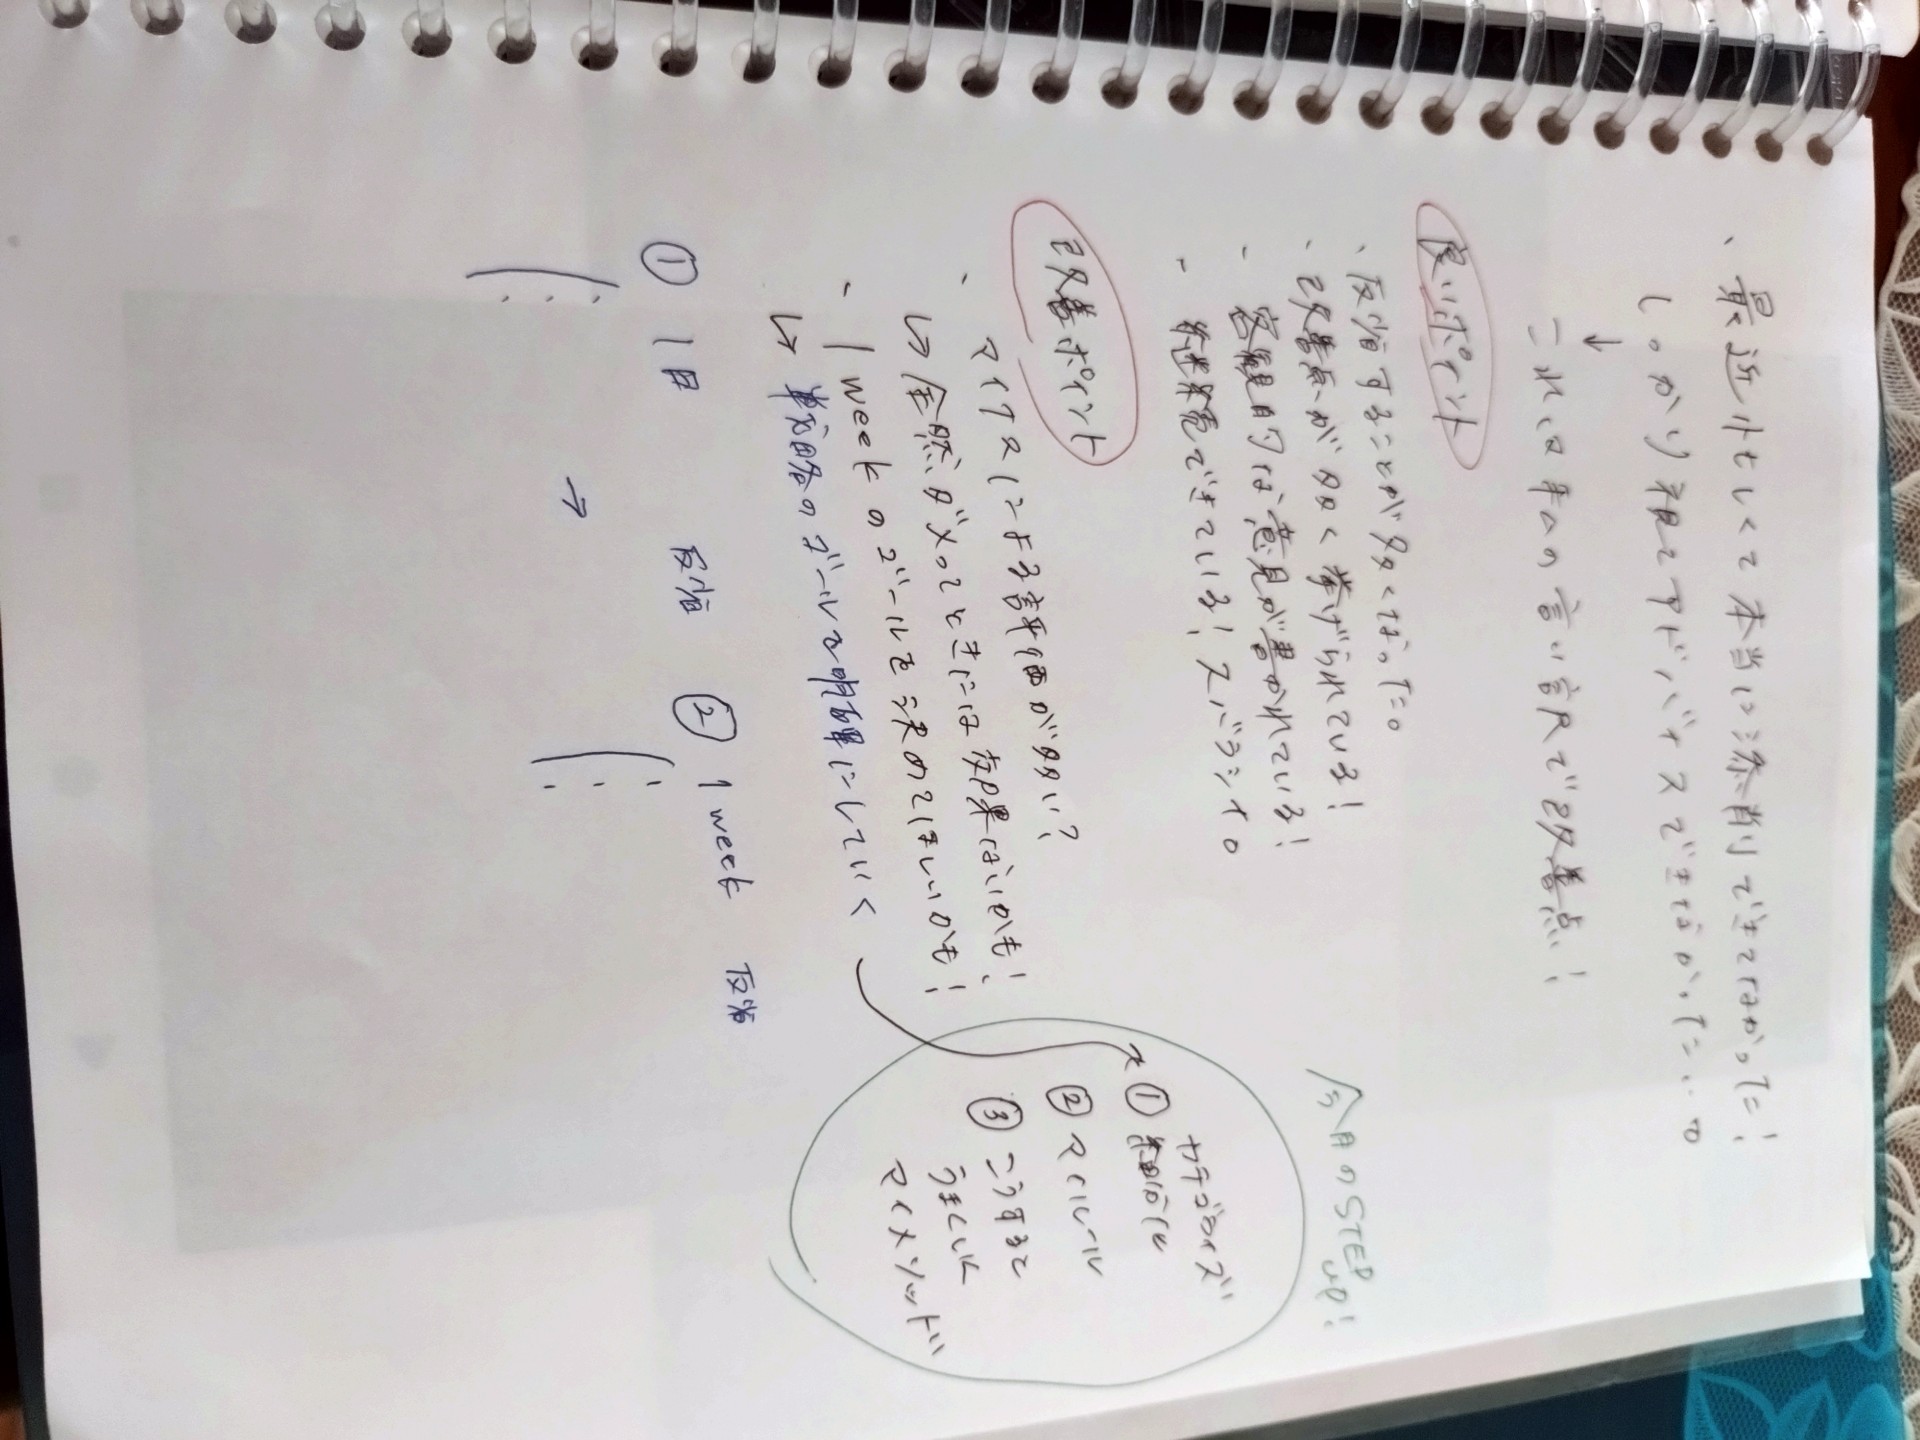 、最近忙しくて本当に添削できてなかった!
しっかり視てアドバイスできなかった…。
↓
これは私の言い訳で改善点!
良いポイント
、反省することが多くなった。
、改善点が多く挙げられている!
、客観的な意見が書かれている!
、継続できている! スバラシイ。
改善ポイント
、マイナスによる評価が多い?
↳全然ダメってときには効果ないかも!
、1weekのゴールを決めてほしいかも!
↳戦略のゴールを明確にしていく
今日のSTEP UP!
カテゴライズ
①細分化
②マイルール
③こうすると
うまくいく
マイメソッド
① 1日 反省 ② 1week 反省
→